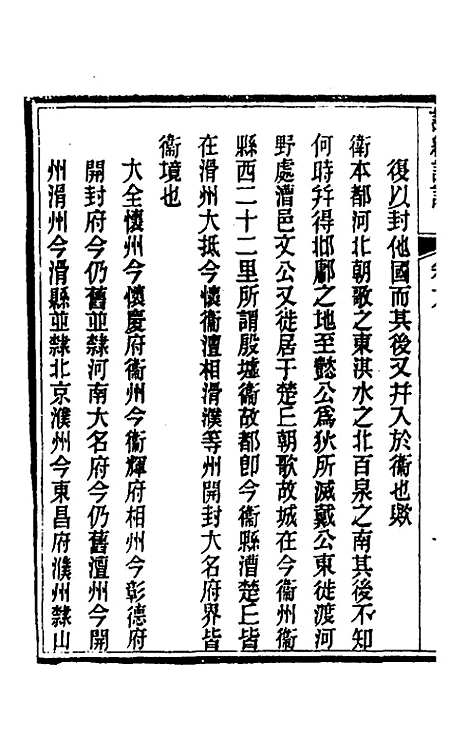 復以封他國而其後又幷入於衞也歟
衞本都河北朝歌之東淇水之北百泉之南其後不知
何時幷得邶鄘之地至懿公爲狄所滅戴公東徙渡河
野處漕邑文公又徙居于楚丘朝歌故城在今衞州衞
縣西二十二里所謂殷墟衞故都卽今衞縣漕楚丘皆
在滑州大抵今懷衞澶相滑濮等州開封大名府界皆
衞境也
大全懷州今懷慶府衞州今衞輝府相州今彰德府
開封府今仍舊並隸河南大名府今仍舊澶州今開
州滑州今滑縣並隸北京濮州今東昌府濮州隸山